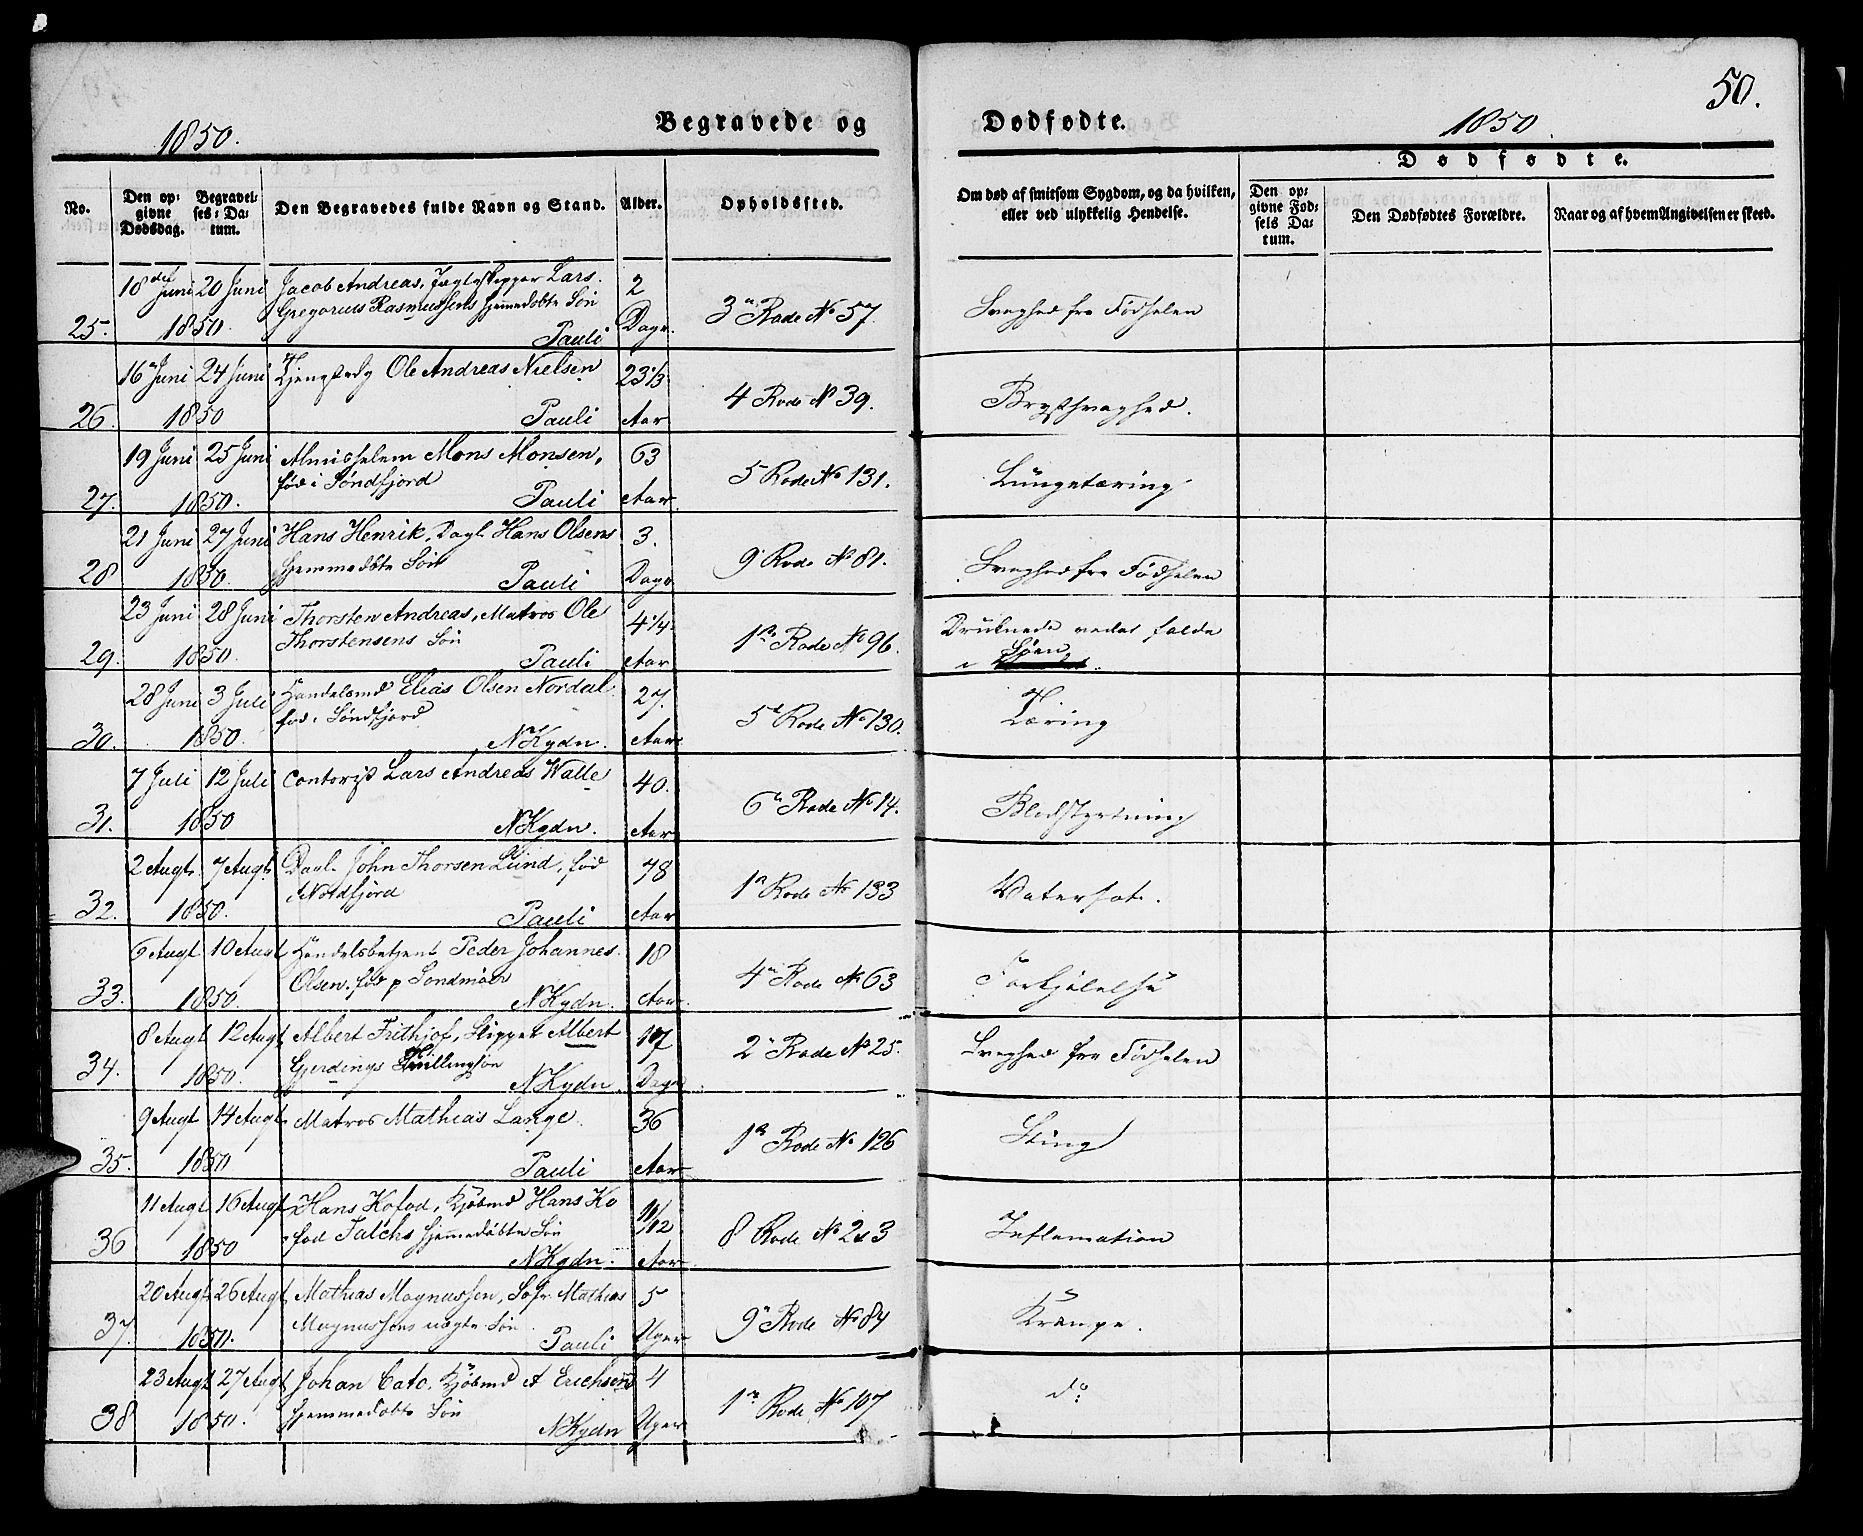 50.
1850.
Begravede og
Dødfødte.
1850.
No.
Den opgivne Dødsdag.
Begravelses-Datum.
Den Begravedes fulde Navn og Stand.
Alder.
Opholdssted.
Om død af smitsom Sygdom, og da hvilken, eller ved ulykkelig Hendelse.
Dødfødte.
Den opgivne Fødsels Datum.
Den Dødfødtes Forældre.
Naar og af hvem Angivelsen er skeed.
18 Juni 20 Juni Jacob Andreas, Jagteskipper Lars 2
Gregorius Rasmussens hjemmedøbte Søn
25. 1850. Pauli Dage. 3 Rode No 57. Svaghed fra Fødselen
16 Juni 24 Juni Ole Andreas Nielsen 23 1/3
26. 1850 Pauli Aar 4 Rode No 39. Brystsvaghed.
19 Juni 25 Juni Almisselem Mons Monsen, 63
født i Søndfjord
27. 1850. Pauli Aar 5 Rode No 131. Lungetæring
21 Juni 27 Juni Hans Henrik, Dagl. Hans Olsens 3.
hjemmedøbte Søn
28 1850. Pauli Dage 9 Rode No 81. Svaghed fra Fødselen
23 Juni 28 Juni Thorsten Andreas, Matros Ole 4 1/4
Thorstensens Søn
29. 1850. Pauli Aar 1 Rode No 96. Druknede ved at falde
i Søen
28 Juni 3 Juli Handelsmd Elias Olsen Nordal 27.
fød i Søndfjord
30. 1850. NKydn. Aar 5 Rode No 130. Tæring
7 Juli 12 Juli Contorist Lars Andreas Walle 40.
31. 1850 NKydn. Aar 6 Rode No 14. Blodstyrtning
2 Augt. 7 Augt. Dagl. John Thorsen Lund, fød 48
i Nordfjord
32. 1850. Pauli Aar 1 Rode No 133 Vatersot.
6 Augt 10 Augt Handelsbetjent Peder Johannes 18
Olsen. fød p Søndmør
33. 1850. NKydn. Aar. 4 Rode No 63 Forkjølelse
8 Augt 12 Augt Albert Frithjof, Skipper Albert 17
Gjerdings Tvillingsøn
34. 1850. NKydn. Dage 2 Rode No 25. Svaghed fra Fødselen
9 Augt 14 Augt Matros Mathias Lange. 36
35. 1850 Pauli Aar 1 Rode No 126 Sting
11 Augt 16 Augt Hans Kofod, Kjøbmd Hans Ko 11/12
fod Falchs hjemmedøbte Søn
36 1850 NKydn. Aar 8 Rode No 213 Inflamation
20 Augt 26 Augt Mathias Magnussen, Mathias 5
Magnussens uægte Søn
37. 1850. Pauli Uger 9 Rode No 84 Krampe.
23 Augt 27 Augt Johan Cato, Kjøbmd A Erichsens 4
hjemmedøbte Søn
38 1850. NKydn Uger 1 Rode No 107 do